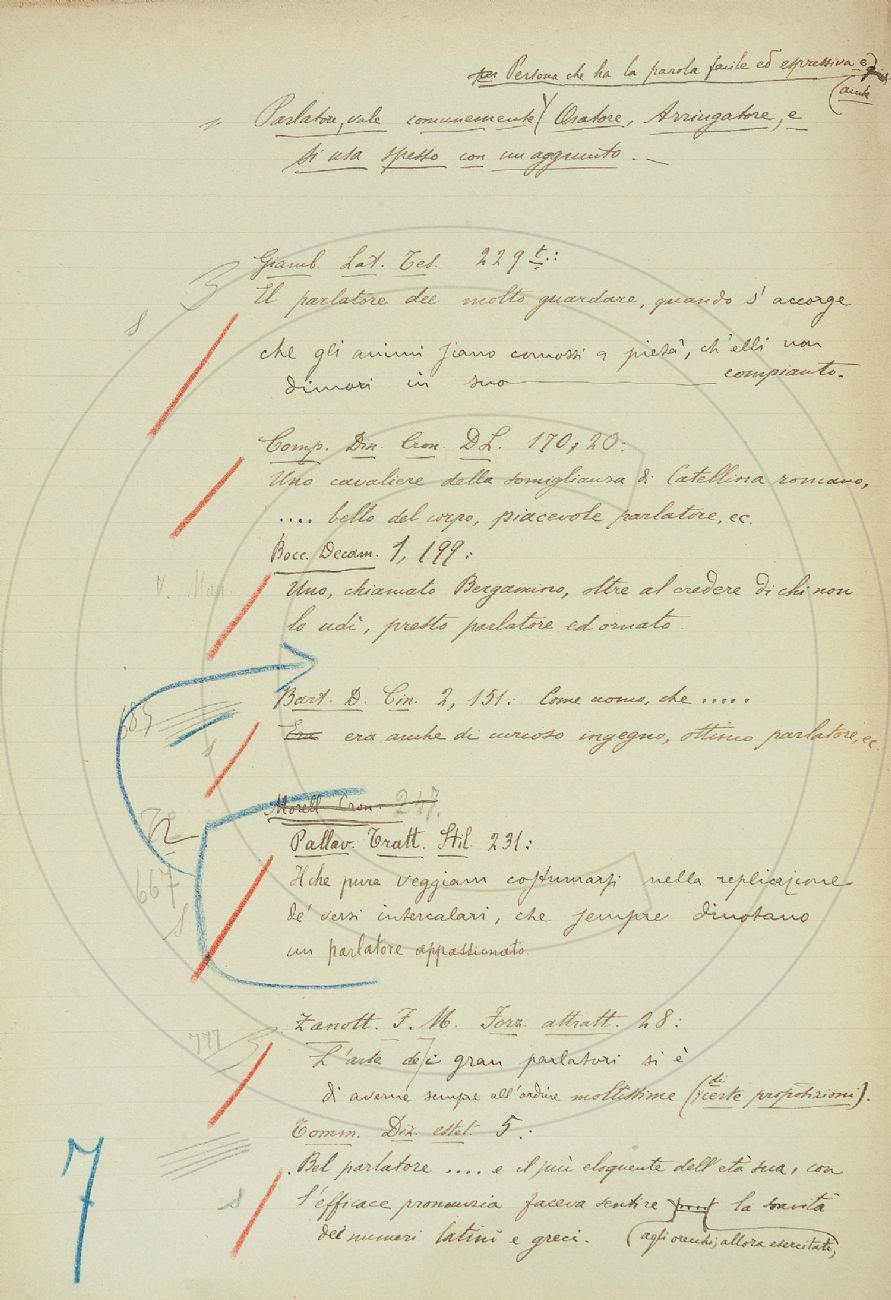 per Persona che ha la parola facile ed espressiva e
(anche
= Parlatore, vale comunemente Oratore, Arringatore, e
si usa spesso con un aggiunto. —
Giamb. Lat. Tes. 229 t.:
3
Il parlatore dee molto guardare, quando s'accorge
che gli animi siano comossi a pietà, ch'elli non
dimori in suo compianto.
Comp. Din. Cron. DL. 170, 20:
Uno cavaliere della somiglianza di Catellina romano,
.... bello del corpo, piacevole parlatore, ec.
Bocc. Decam. 1, 199:
V. Man.
Uno, chiamato Bergamino, oltre al credere di chi non
lo udì, presto parlatore ed ornato.
Bart. D. Cin. 2, 151: Come uomo, che .....
Era era anche di curioso ingegno, ottimo parlatore, ec.
Morell Cron. 247.
Pallav. Tratt. Stil. 231:
667
Il che pure veggiam costumarsi nella replicazione
de' versi intercalari, che sempre dinotano
un parlatore appassionato.
Zanott. F. M. Forz. attratt. 28:
777
L'arte dei gran parlatori si è
di averne sempre all'ordine moltissime (di certe proposizioni).
Tomm. Diz. estet. 5:
Bel parlatore .... e il più eloquente dell'età sua, con
l'efficace pronunzia faceva sentire la soavità
dei numeri latini e greci. (agli orecchi, allora esercitati,
7